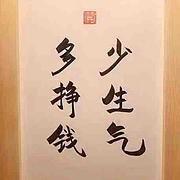 少生气
多挣钱